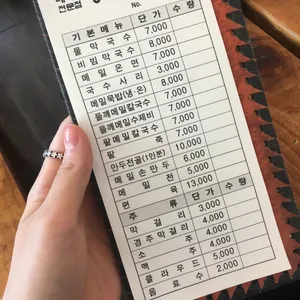 전문점
No.
기본메뉴 단가 수량
물막국수 7,000
비빔막국수 8,000
메밀온면 7,000
국수사리 3,000
메밀묵밥(냉·온) 8,000
들깨메밀칼국수 7,000
들깨메밀수제비 7,000
팥메밀칼국수 7,000
팥죽 7,000
만두전골(1인분) 10,000
메밀손만두 6,000
메밀전 5,000
편육 13,000
주류 단가 수량
막걸리 3,000
경주막걸리 4,000
소주 4,000
맥주 4,000
클라우드 5,000
음료수 2,000